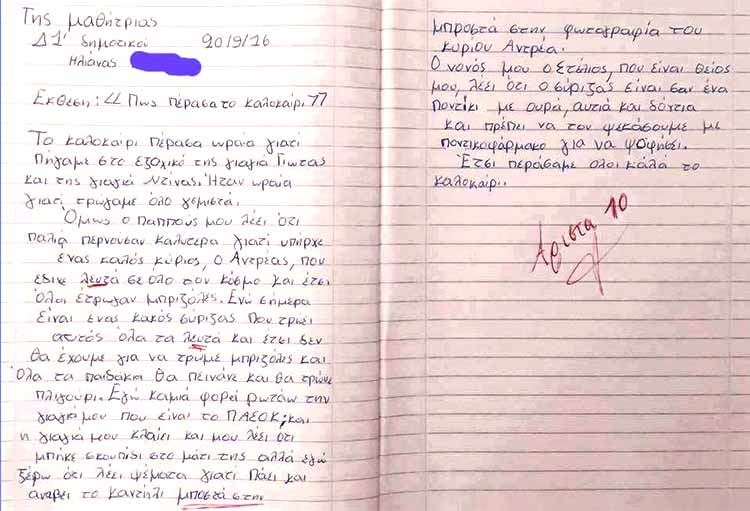 Της μαθήτριας
Δ1' δημοτικού 20/9/16
Ηλιάνας
Εκθεση: "Πως πέρασα το καλοκαίρι"
Το καλοκαίρι πέρασα ωραία γιατί
πήγαμε στο εξοχικό της γιαγιά Γιώτας
και της γιαγιά Ντίνας. Ήταν ωραία
γιατί τρώγαμε όλο γεμιστά.
Όμως ο παππούς μου λέει ότι
παλιά περνούσαν καλύτερα γιατί υπήρχε
ένας καλός κύριος, ο Αντρέας, που
έδινε λευτά σε όλο τον κόσμο και έτσι
όλοι έτρωγαν μπριζόλες. Ενώ σήμερα
είναι ένας κακός σύριζας που τρώει
αυτός όλα τα λευτά και έτσι δεν
θα έχουμε για να τρώμε μπριζόλες και
όλα τα παιδάκια θα πεινάνε και θα τρώνε
πλιγούρι. Εγώ καμιά φορεί ρωτάω την
γιαγιά μου που είναι το ΠΑΣΟΚ; και
η γιαγιά μου κλαίει και μου λέει ότι
μπήκε σκουπίδι στο μάτι της αλλά εγώ
ξέρω ότι λέει ψέματα γιατί πάει και
ανάβει το καντήλι μποστά στην
μπροστά στην φωτογραφία του
κυρίου Αντρέα.
Ο νονός μου ο Στέλιος, που είναι θείος
μου, λέει ότι ο σύριζας είναι σαν ένα
ποντίκι με ουρά, αυτιά και δόντια
και πρέπει να τον ψεκάσουμε με
ποντικοφάρμακο για να ψοφήσει.
Έτσι περάσαμε όλοι καλά το
καλοκαίρι.
Άριστα 10